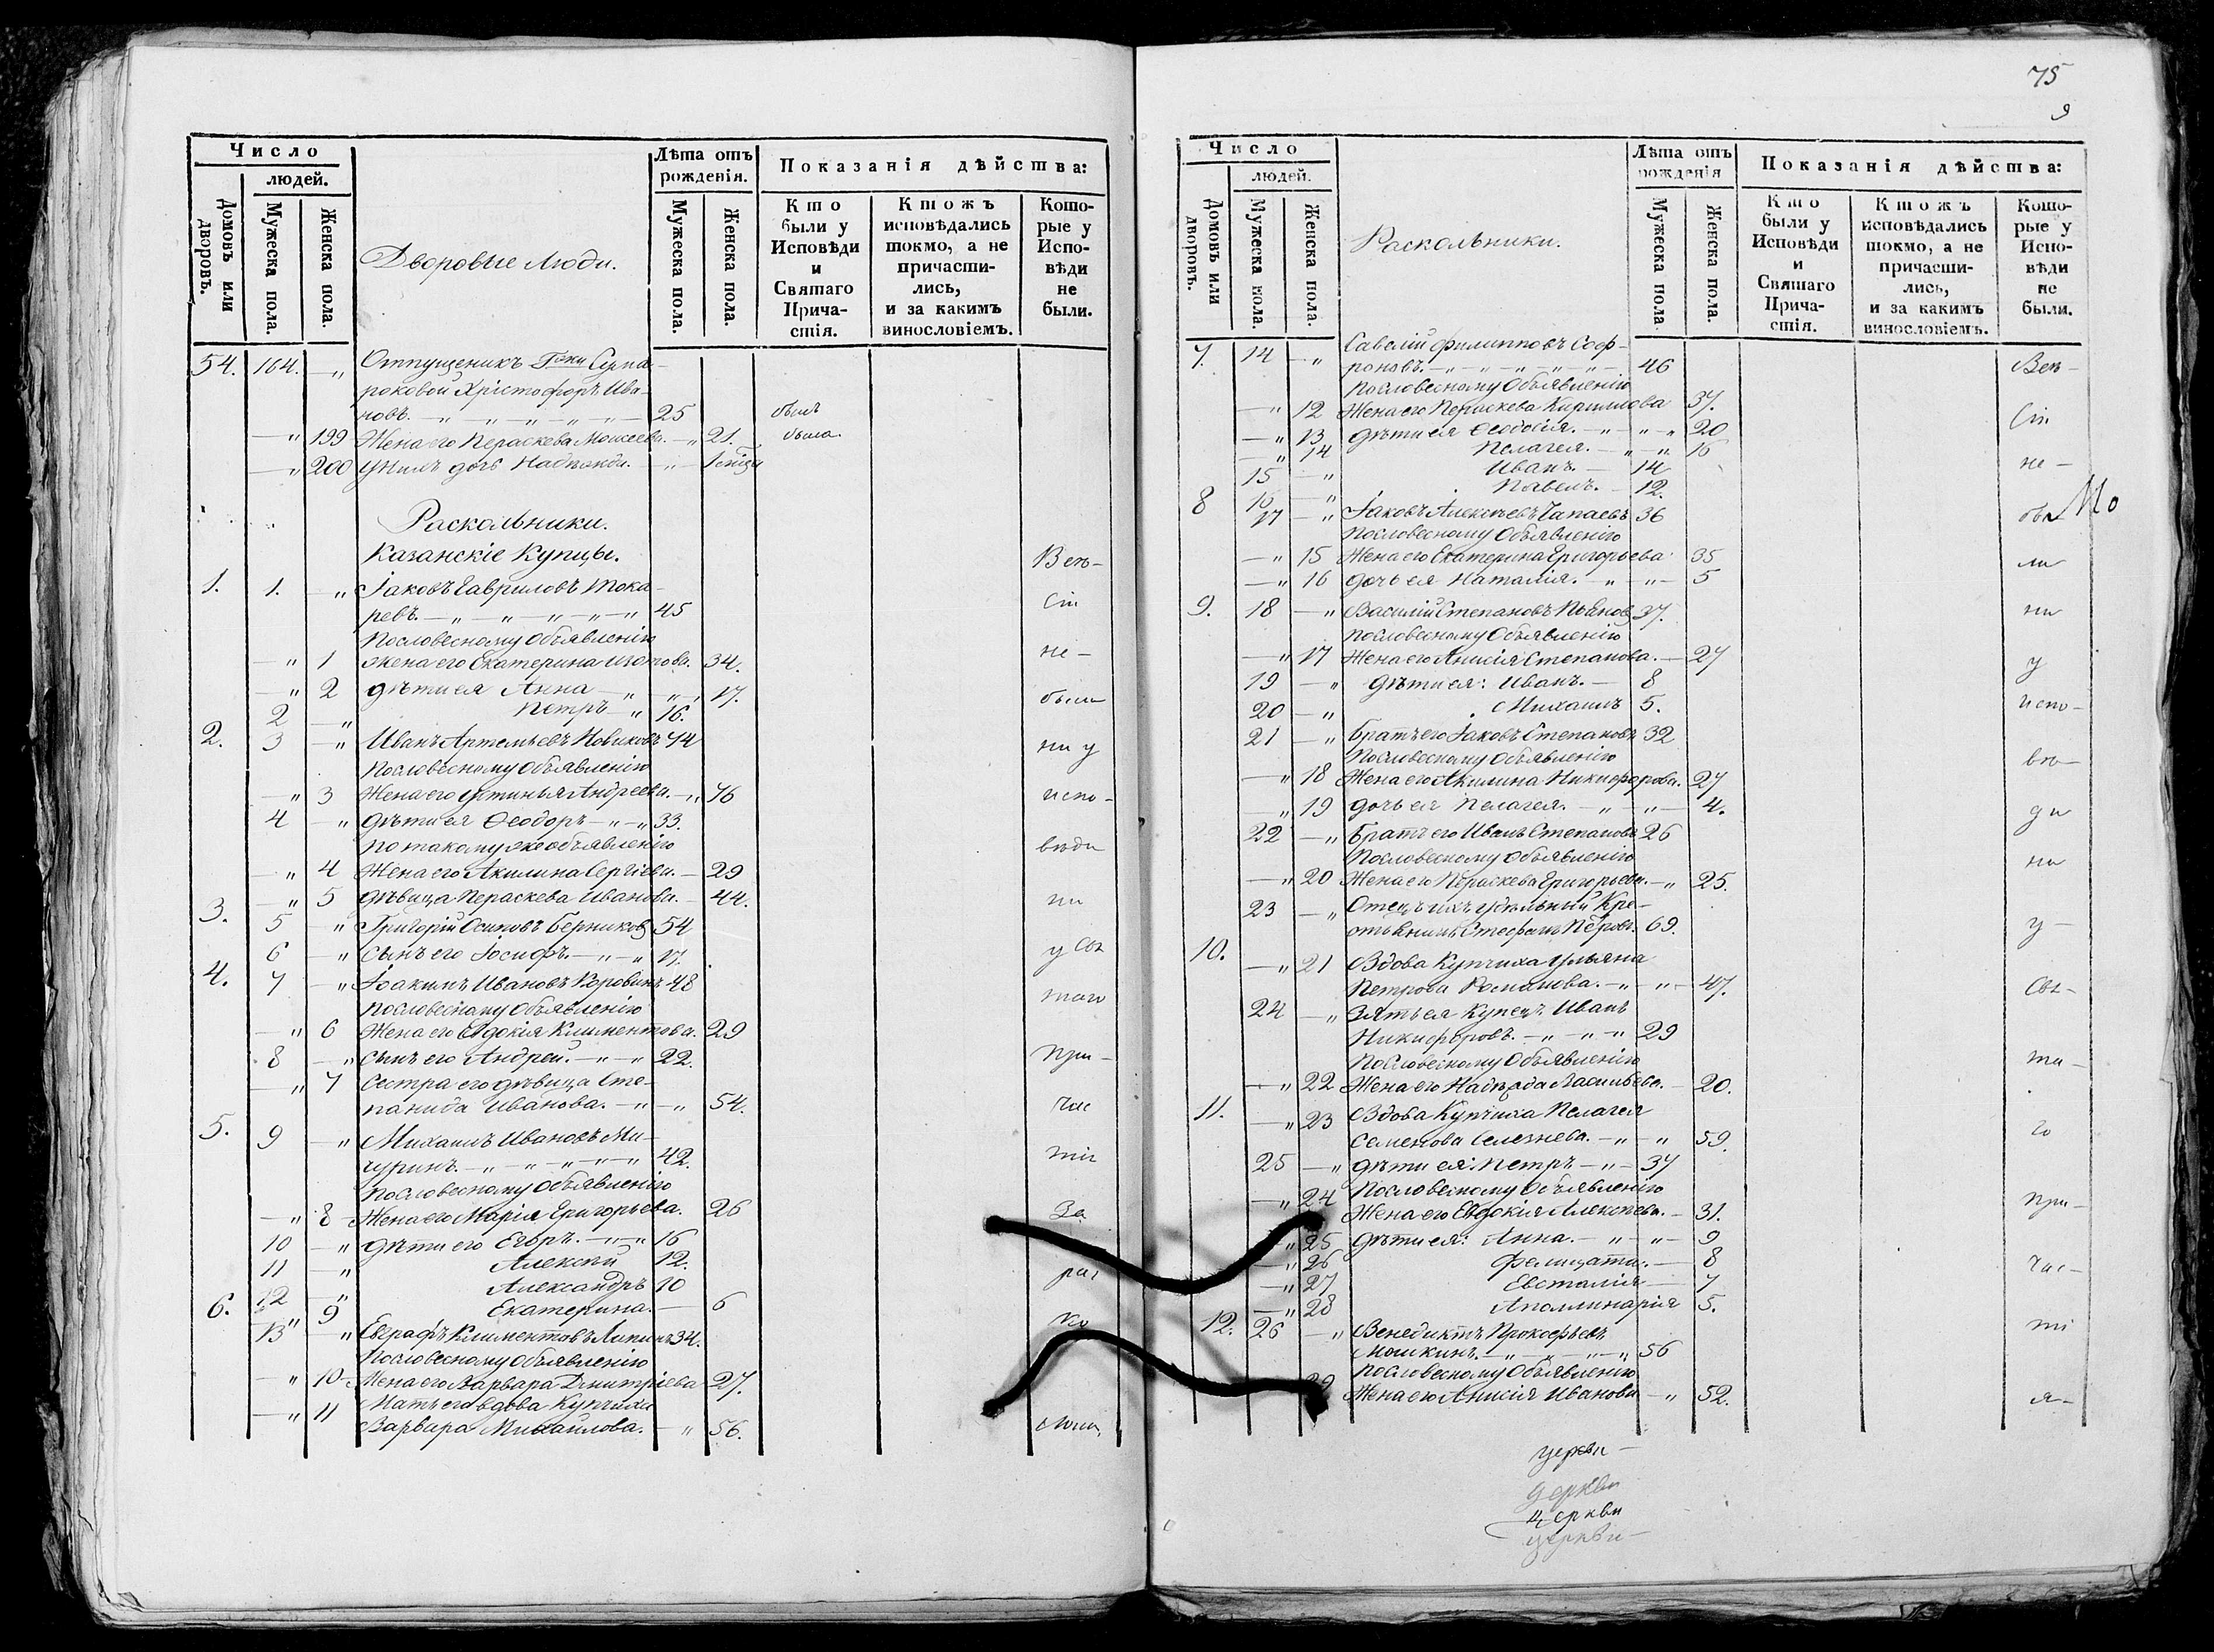 Число
людей.
Домовъ или дворовъ.
Мужеска пола.
Женска пола.
Дворовые Люди.
Лѣта отъ рожденія.
Мужеска пола.
Женска пола.
Показанія дѣйства:
Кто были у Исповѣди и Святаго Причастія.
Ктожъ исповѣдались токмо, а не причастились, и за какимъ винословіемъ.
Которые у Исповѣди не были.
54. 164. — „ Отпущеникъ Гжи Сума-
роковой Хрістофоръ Ива-
новъ. — „ — „ — „ — 25 былъ
— „ 199 Жена его Пераскева Моисеева. — „ 21. была
— „ 200 У нихъ дочь Надежда. — „ —
Раскольники.
Казанскіе Купцы.
1. 1. — „ Іаковъ Гавриловъ Тока-
ревъ. — „ — „ — „ — „ 45
По словесному Объявленію
— „ 1 жена его Екатерина Изотова. 34.
— „ 2 дѣти ея Анна — „ — „ 17.
2 — „ Петръ — „ 16.
2. 3 — „ Иванъ Артемьевъ Новиковъ 74
По словесному Объявленію
— „ 3 Жена его Устинья Андреева. — „ 76
4 — „ дѣти ея Ѳеодоръ — „ — „ 33.
по такому же объявленію
— „ 4 Жена его Акилина Сергіева. — 29
— „ 5 дѣвица Пераскева Иванова. — 44.
3. 5 — „ Григорій Осиповъ Верниковъ 54
6 — „ Сынъ его Іосифъ. — „ — „ 17.
4. 7 — „ Іоакимъ Ивановъ Коровинъ 48
По словесному Объявленію
— „ 6 Жена его Евдокія Климентова. 29
8 — „ Сынъ его Андрей. — „ — „ 22.
— „ 7 Сестра его дѣвица Сте-
панида Иванова. — „ — „ 54.
5. 9 — „ Михаилъ Ивановъ Ми-
чуринъ. — „ — „ — „ — „ 42.
По словесному Объявленію
— „ 8 Жена его Марія Григорьева. 26
10 — „ дѣти его Егоръ. — „ — „ 16
11 — „ Алексѣй 12.
12 — „ Александръ 10
— „ 9 Екатерина. — 6
6. 13 — „ Евграфъ Климентовъ Липинъ 34.
По словесному Объявленію
— „ 10 Жена его Варвара Дмитріева 27.
— „ 11 Мать его вдова Купчиха
Варвара Михаилова. — „ 56.
Всѣ-
сіи
не-
были
ни у
испо-
вѣди
ни
у Свя
таго
При-
час
тія
За
рас
ко
лом
75
9
Число
людей.
Домовъ или дворовъ.
Мужеска пола.
Женска пола.
Раскольники.
Лѣта отъ рожденія
Мужеска пола
Женска пола.
Показанія дѣйства:
Кто были у Исповѣди и Святаго Причастія.
Ктожъ исповѣдались токмо, а не причастились, и за какимъ винословіемъ.
Которые у Исповѣди не были.
7. 14 — „ Савелій Филипповъ Соф-
роновъ. — „ — „ — „ — „ 46
По словесному Объявленію
— „ 12 Жена его Пераскева Кириллова 37.
— „ 13 дѣти ея Ѳеодосія. — „ — „ 20
— „ 14 Пелагея. — „ — „ 16
15 — „ Иванъ. — 14
16 — „ Павелъ. — 12.
8 17 — „ Іаковъ Алексѣевъ Чапаевъ 36
По словесному Объявленію
— „ 15 Жена его Екатерина Григорьева 35
— „ 16 дочь ея Наталія. — „ — „ — 5
9. 18 — „ Василій Степановъ 37.
По словесному Объявленію
— „ 17 Жена его Анисія Степанова. — 27
19 — „ дѣти ея: Иванъ. — 8
20 — „ Михаилъ 5.
21 — „ Братъ его Іаковъ Степановъ 32
По словесному Объявленію
— „ 18 Жена его Акилина Никифорова. 27
— „ 19 дочь ея Пелагея. — „ — „ — 4.
22 — „ Братъ его Иванъ Степановъ 26
По словесному Объявленію
— „ 20 Жена его Пераскева Григорьева. — „ 25.
23 — „ Отецъ ихъ удѣльный Кре-
стьянинъ Стефанъ Петровъ. 69.
10. — „ 21 Вдова Купчиха Ульяна
Петрова Романова. — „ — „ — 47.
24 — „ Зять ея Купецъ Иванъ
Никифоровъ. — „ — „ — „ 29
По словесному Объявленію
— „ 22 Жена его Надежда Васильева. — 20.
11. — „ 23 Вдова Купчиха Пелагея
Семенова Селезнева. — „ — „ 59.
25 — „ дѣти ея: Петръ — „ — 37
По словесному Объявленію
— „ 24 Жена его Евдокія Алексѣева. — 31.
— „ 25 дѣти ея: Анна. — „ — „ — 9
— „ 26 Фелицата. — 8
— „ 27 Евсталія — 7
— „ 28 Аполлинарія 5.
12. 26 — „ Венедиктъ Прокофьевъ
Мошкинъ. — „ — „ — „ — „ 56
По словесному Объявленію
29 Жена его Анисія Иванова — „ 52.
Всѣ-
сіи
не-
бы
ли
ни
у
испо-
вѣ-
ди
ни
у-
Свя-
та-
го
При-
час-
ті
я-
церкви-
церкви
церкви
церкви-